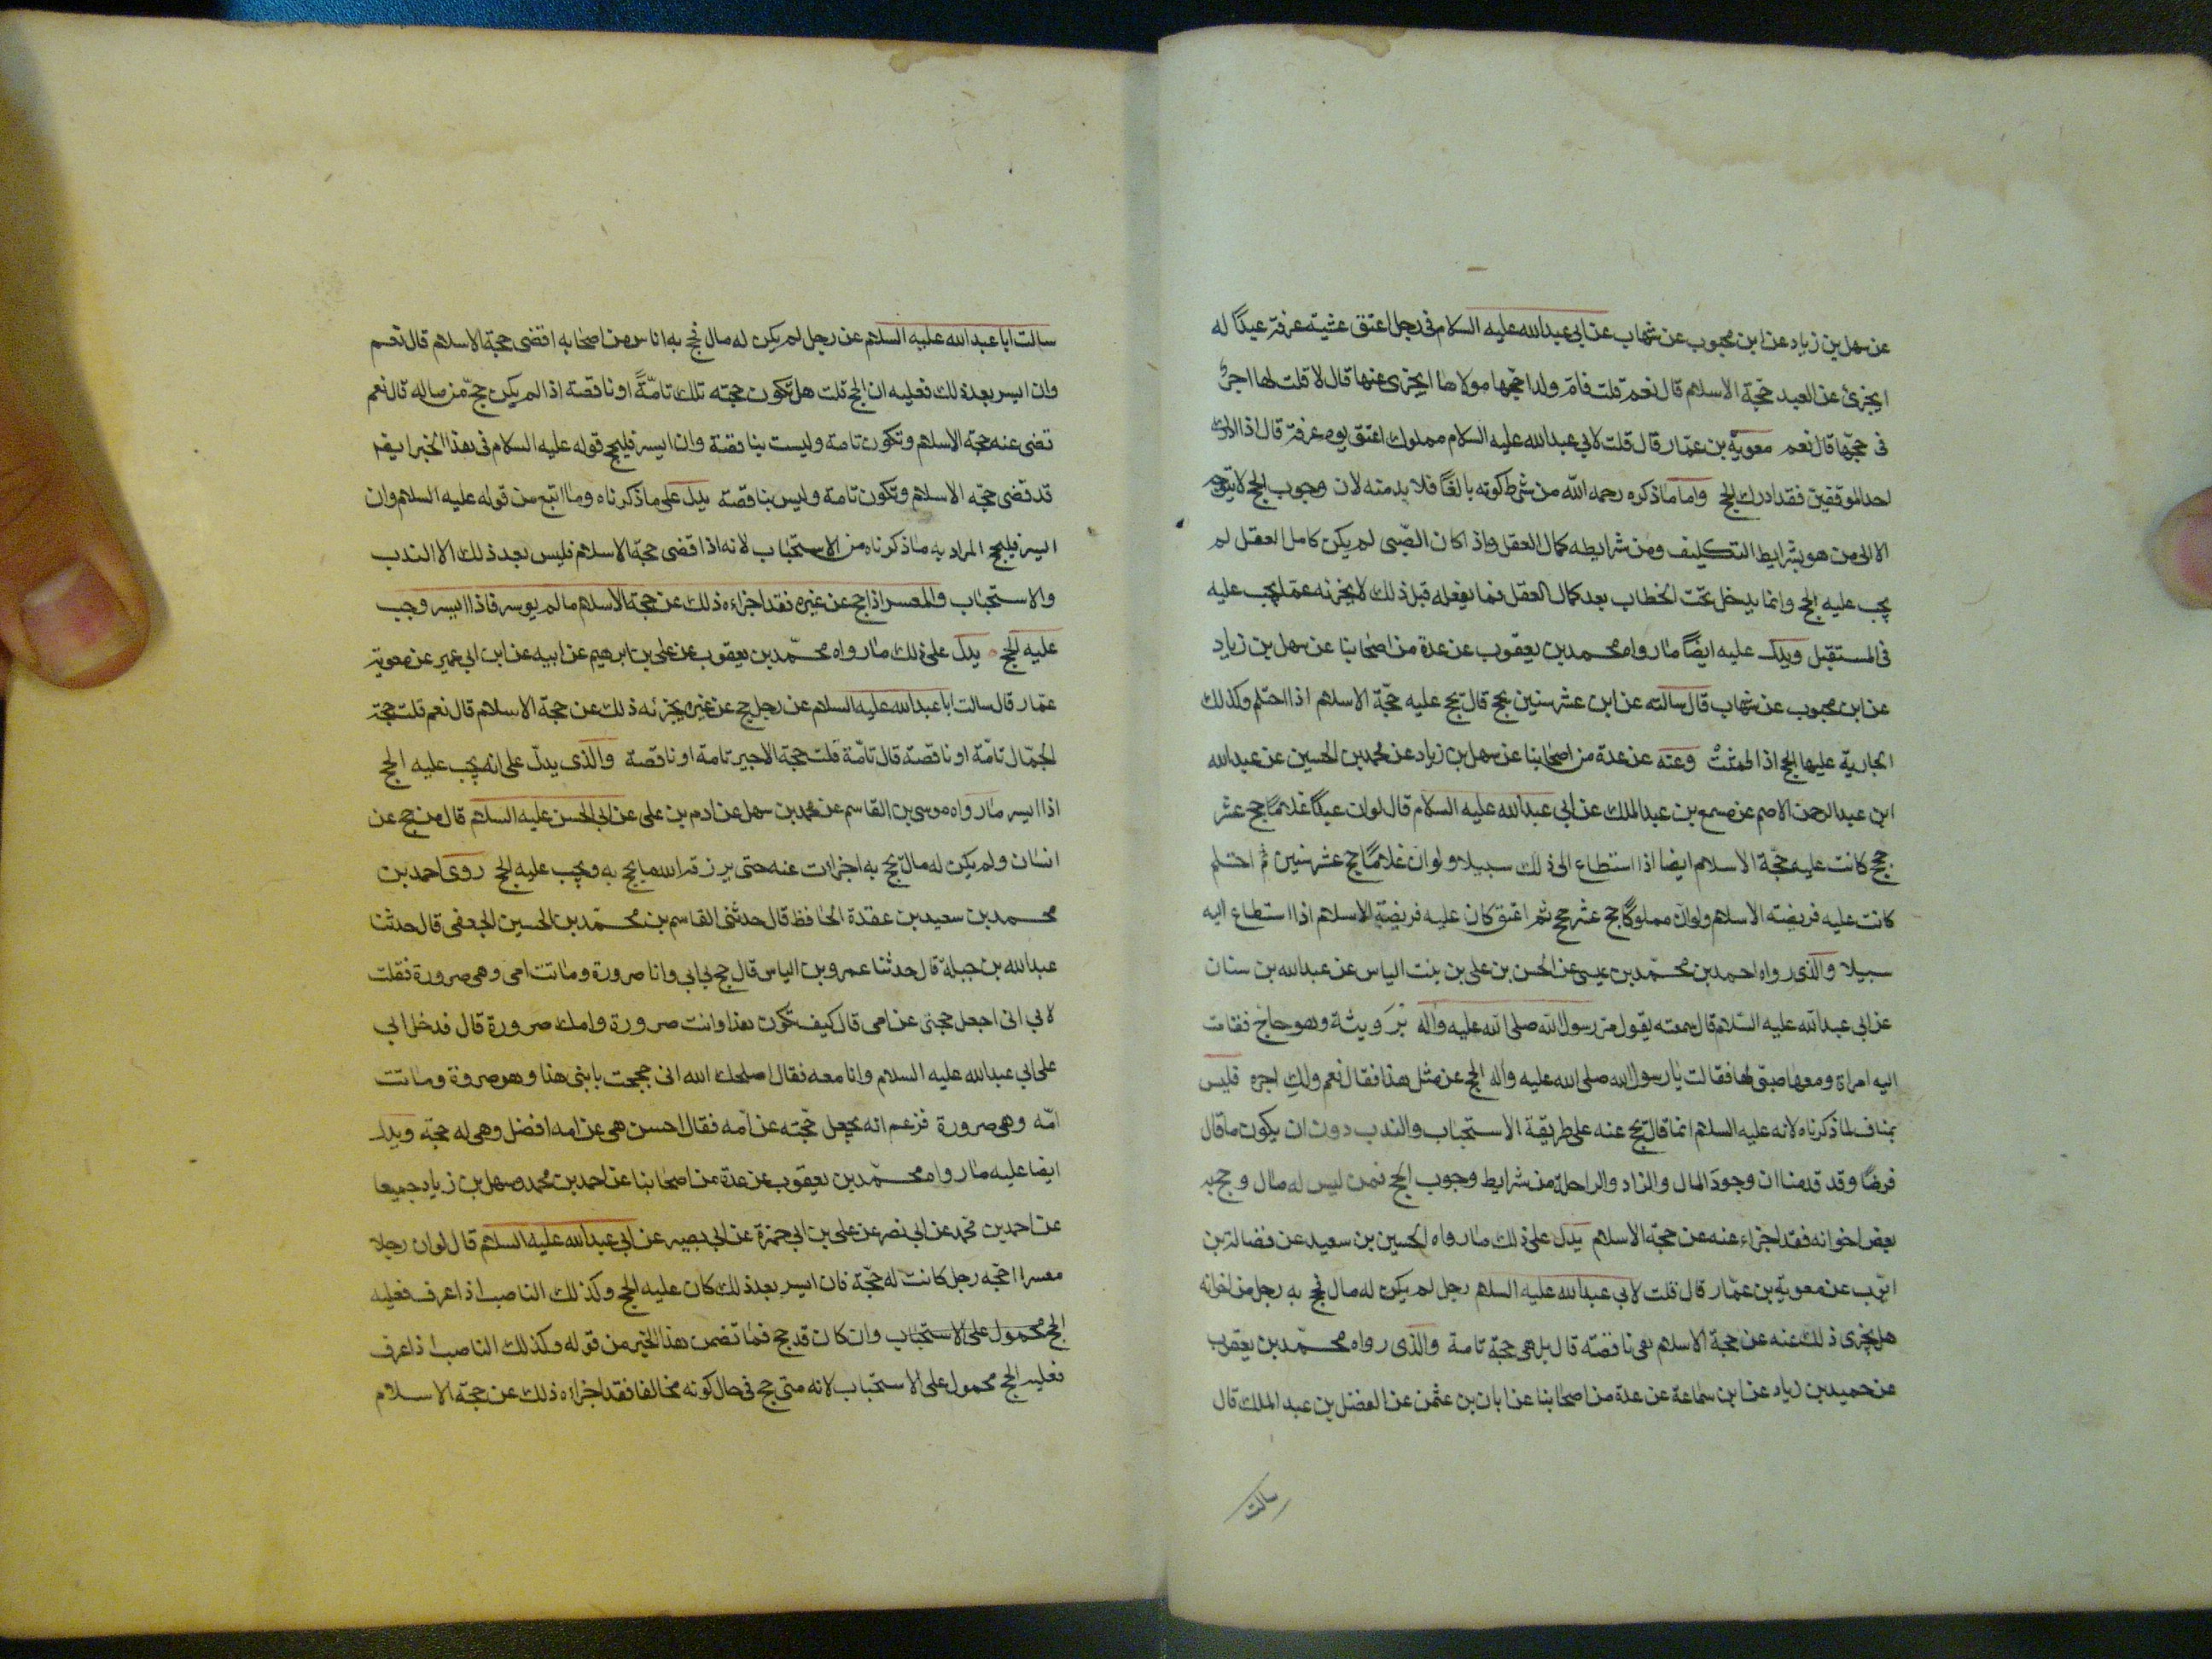 عن سهل بن زياد عن ابن محبوب عن شهاب عن ابى عبدالله عليه السلام فى رجل اعتق عشية عرفة عبدًا له
ايجزئ عن العبد حجّة الاسلام قال نعم قلت فامّ ولد احجّها مولاها ايجزى عنها قال لا قلت لها اجرٌ
فى حجّها قال نعم معوية بن عمّار قال قلت لابي عبدالله عليه السلام مملوك اعتق يوم عرفة قال اذا ادرك
احد الموقفين فقد ادرك الحج واما ما ذكره رحمه الله من شرط كونه بالغًا فلا بد منه لان وجوب الحج لا يتوجه
الا الى من هو بشرايط التكليف ومن شرايطه كمال العقل واذا كان الصّبى لم يكن كامل العقل لم
يجب عليه الحج وانما يدخل تحت الخطاب بعد كمال العقل فما يفعله قبل ذلك لا يجزئه عمّا يجب عليه
فى المستقبل ويدل عليه ايضًا ما رواه محمد بن يعقوب عن عدة من اصحابنا عن سهل بن زياد
عن ابن محبوب عن شهاب قال سالته عن ابن عشر سنين يحج قال يحج عليه حجّة الاسلام اذا احتلم وكذلك
الجارية عليها الحج اذا طمثت وعنه عن عدة من اصحابنا عن سهل بن زياد عن محمد بن الحسين عن عبدالله
ابن عبدالرحمن الاصم عن مسمع بن عبد الملك عن ابى عبدالله عليه السلام قال لو ان عبدًا غلامًا حج عشر
حجج كانت عليه حجّة الاسلام ايضا اذا استطاع الى ذلك سبيلا ولو ان غلامًا حج عشر سنين ثم احتلم
كانت عليه فريضته الاسلام ولو ان مملوكًا حج عشر حجج ثم اعتق كان عليه فريضة الاسلام اذا استطاع اليه
سبيلا والذى رواه احمد بن محمّد بن عيسى عن الحسن بن على بن بنت الياس عن عبدالله بن سنان
عن ابى عبدالله عليه السّلام قال سمعته يقول مرّ رسول الله صلى الله عليه واله بَرَويثة وهو حاج فقامت
اليه امراة ومعها صبىّ لها فقالت يا رسول الله صلى الله عليه واله الحج عن مثل هذا فقال نعم ولك اجره فليس
بمناف لما ذكرناه لانه عليه السلام انما قال يحج عنه على طريقة الاستحباب والندب دون ان يكون ما قال
فرضًا وقد قدمنا ان وجودَ المال والزاد والراحلة من شرايط وجوب الحج فمن ليس له مال وحج به
بعض اخوانه فقد اجزاء عنه عن حجّة الاسلام يدل على ذلك ما رواه الحسين بن سعيد عن فضالة بن
ايّوب عن معوية بن عمّار قال قلت لابي عبدالله عليه السلام رجل لم يكن له مال فحج به رجل من اخوانه
هل يجزى ذلك عنه عن حجة الاسلام هى ناقصة قال بل هى حجّة تامة والذى رواه محمّد بن يعقوب
عن حميد بن زياد عن ابن سماعة عن عدة من اصحابنا عن ابان بن عثمن عن الفضل بن عبد الملك قال
سالت
سالت ابا عبدالله عليه السلام عن رجل لم يكن له مال فحج به اناس من اصحابه اقضى حجة الاسلام قال نعم
وان ايسر بعد ذلك فعليه ان يحج قلت هل تكون حجته تلك تامّةً او ناقصة اذا لم يكن حجّ من ماله قال نعم
قضى عنه حجة الاسلام وتكون تامة وليست بناقصة وان ايسر فليحج قوله عليه السلام فى هذا الخبر ايضا
قد قضى حجّة الاسلام وتكون تامة وليس بناقصة يدل على ما ذكرناه وما اتبع من قوله عليه السلام وان
ايسر فليحج المراد به ما ذكرناه من الاستحباب لانه اذا قضى حجّة الاسلام فليس بعد ذلك الا الندب
والاستحباب والمعسر اذا حج عن غيره فقد اجزاءه ذلك عن حجة الاسلام ما لم يوسر فاذا ايسر وجب
عليه الحج يدل على ذلك ما رواه محمّد بن يعقوب عن على بن ابرهيم عن ابيه عن ابن ابى عمير عن معوية
عمّار قال سالت ابا عبدالله عليه السلام عن رجل حج عن غيره يجزئه ذلك عن حجة الاسلام قال نعم قلت حجة
الجمّال تامّة او ناقصة قال تامّة قلت حجة الاجير تامة او ناقصة والذى يدلّ على انه يجب عليه الحج
اذا ايسر ما رواه موسى بن القاسم عن محمد بن سهل عن ادم بن على عن ابى الحسن عليه السلام قال من حج عن
انسان ولم يكن له مال يحج به اجزات عنه حتى يرزقه الله ما يحج به ويجب عليه الحج روى احمد بن
محمد بن سعيد بن عقدة الحافظ قال حدثنى القاسم بن محمّد بن الحسين الجعفى قال حدثنا
عبدالله بن جبلة قال حدثنا عمرو بن الياس قال حج بي ابي وانا صرورة وماتت امى وهى صرورة فقلت
لابي انى اجعل حجتى عن امى قال كيف تكون هذا وانت صرورة وامك صرورة قال فدخل ابي
على ابي عبدالله عليه السلام وانا معه فقال اصلحك الله انى حججت بابنى هذا وهو صرورة وماتت
امّه وهى صرورة فزعم انه يجعل حجّته عن امّه فقال احسن هى عن امه افضل وهى له حجّة ويدل
ايضا عليه ما رواه محمّد بن يعقوب عن عدة من اصحابنا عن احمد بن محمد وسهل بن زياد جميعا
عن احمد بن محمد عن ابى نصر عن على بن ابى حمزة عن ابى بصير عن ابى عبدالله عليه السلام قال لو ان رجلا
معسرا احجّه رجل كانت له حجّة فان ايسر بعد ذلك كان عليه الحج وكذلك الناصب اذا عرف فعليه
الحج محمول على الاستحباب وان كان قد حج فما تضمن هذا الخبر من قوله وكذلك الناصب اذا عرف
فعليه الحج محمول على الاستحباب لانه متى حج فى حال كونه مخالفا فقد اجزاءه ذلك عن حجّة الاسلام